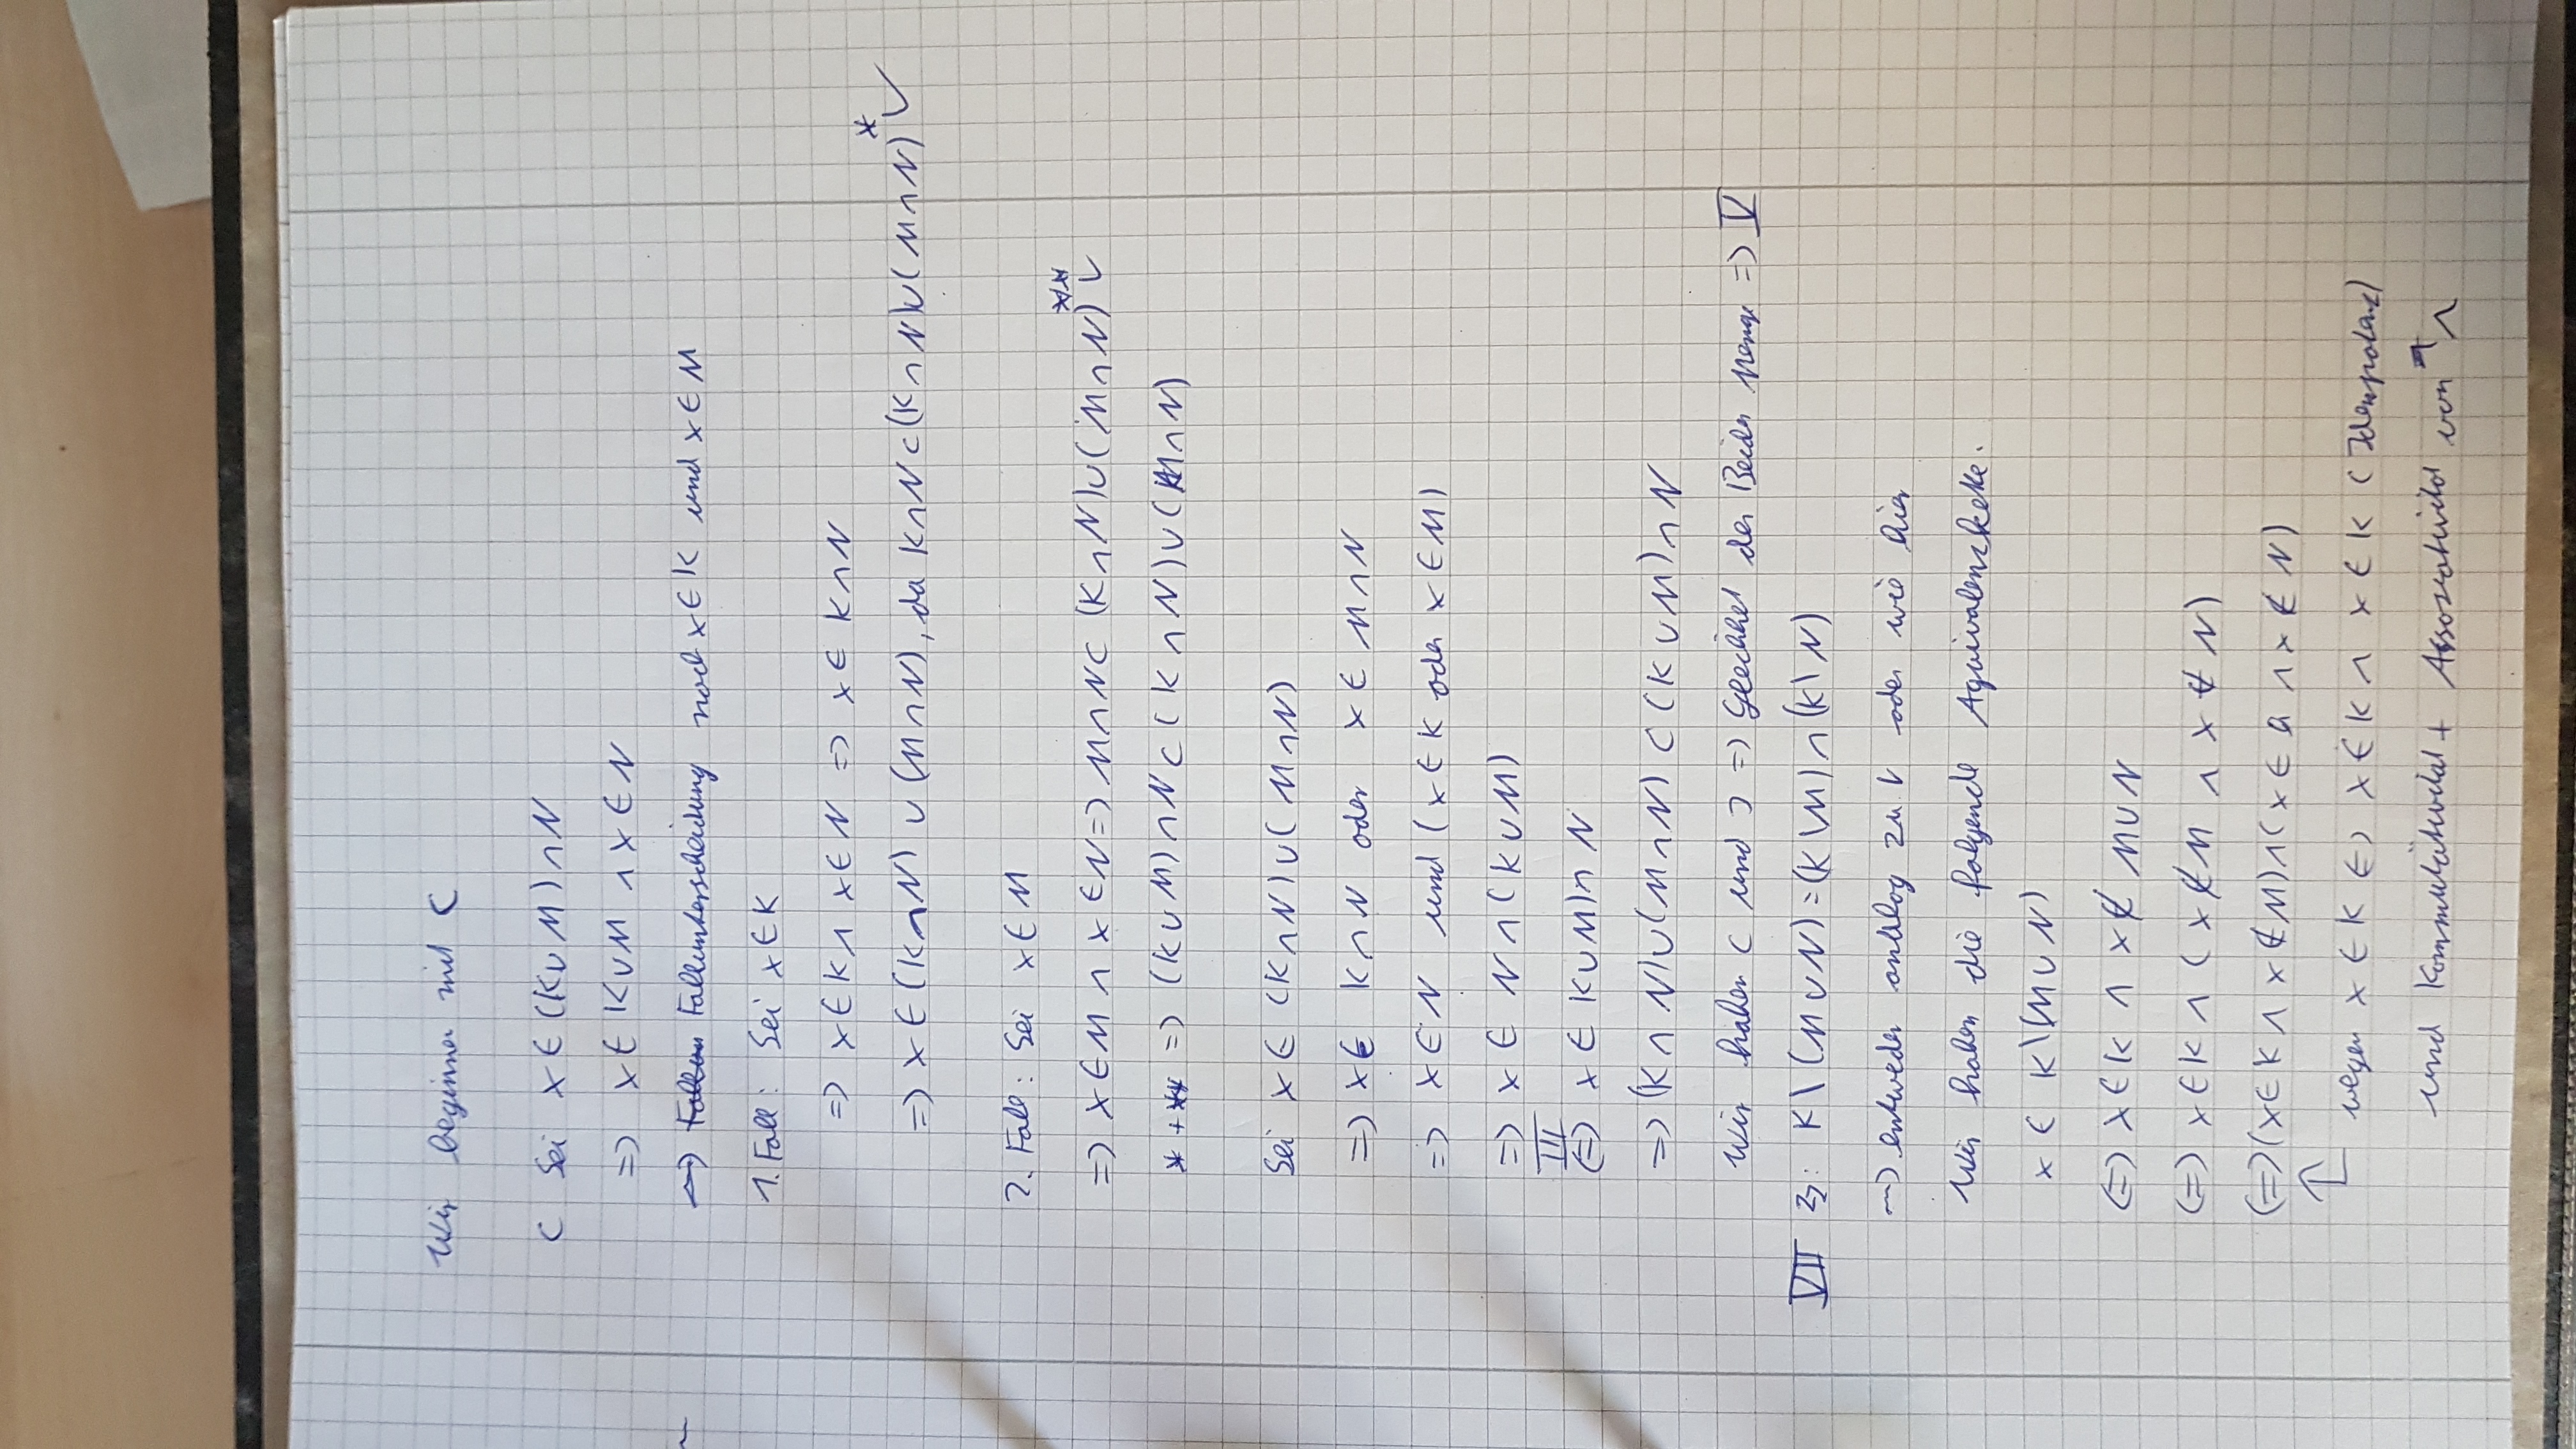 Wir beginnen mit ⊂
⊂ Sei x ∈ (K ∪ M) ∩ N
=> x ∈ K ∪ M ∧ x ∈ N
Fallunterscheidung nach x ∈ K und x ∈ M
1. Fall: Sei x ∈ K
=> x ∈ K ∧ x ∈ N => x ∈ K ∩ N
=> x ∈ (K ∩ N) ∪ (M ∩ N), da K ∩ N ⊂ (K ∩ N) ∪ (M ∩ N) * ✓
2. Fall: Sei x ∈ M
=> x ∈ M ∧ x ∈ N => M ∩ N ⊂ (K ∩ N) ∪ (M ∩ N) ** ✓
* + ** => (K ∪ M) ∩ N ⊂ (K ∩ N) ∪ (M ∩ N)
Sei x ∈ (K ∩ N) ∪ (M ∩ N)
=> x ∈ K ∩ N oder x ∈ M ∩ N
=> x ∈ N und (x ∈ K oder x ∈ M)
=> x ∈ N ∩ (K ∪ M)
III
<=> x ∈ K ∪ M) ∩ N
=> (K ∩ N) ∪ (M ∩ N) ⊂ (K ∪ M) ∩ N
Wir haben ⊂ und ⊃ => der Beider Menge => V
VII Z: K \ (M ∪ N) = (K \ M) ∩ (K \ N)
~> entweder analog zu V oder wie hier
Wir haben die folgende Äquivalenzkette.
x ∈ K \ (M ∪ N)
<=> x ∈ K ∧ x ∉ M ∪ N
<=> x ∈ K ∧ (x ∉ M ∧ x ∉ N)
<=> (x ∈ K ∧ x ∉ M) ∧ (x ∈ ∧ x ∉ N)
↑ wegen x ∈ K <=> x ∈ K ∧ x ∈ K (Idempotenz)
und Kommutativität + Assoziativität von ∧